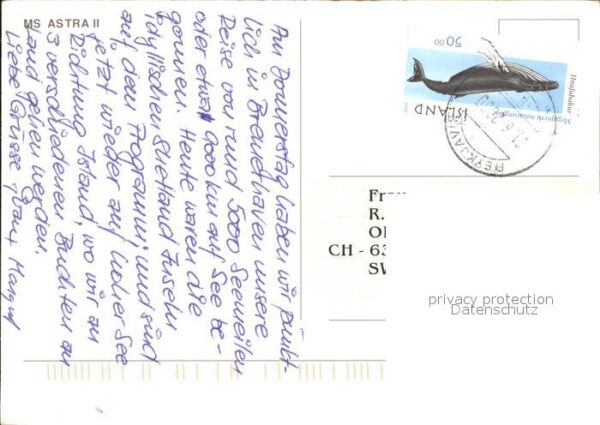 MS ASTRA II
Am Donnerstag haben wir pünkt-
lich in Bremerhaven unsere
Reise von rund 5000 Seemeilen
oder etwa 9000 km auf See be-
gonnen. Heute waren die
idyllischen Shetland Inseln
auf dem Programm, und sind
jetzt wieder auf hoher See
Richtung Island, wo wir an
3 verschiedenen Buchten an
Land gehen werden.
Liebe Grüsse
50.00
ÍSLAND
Hnúfubakur
Megaptera novaeangliae
REYKJAVÍK
R.
CH - 63
privacy protection
Datenschutz